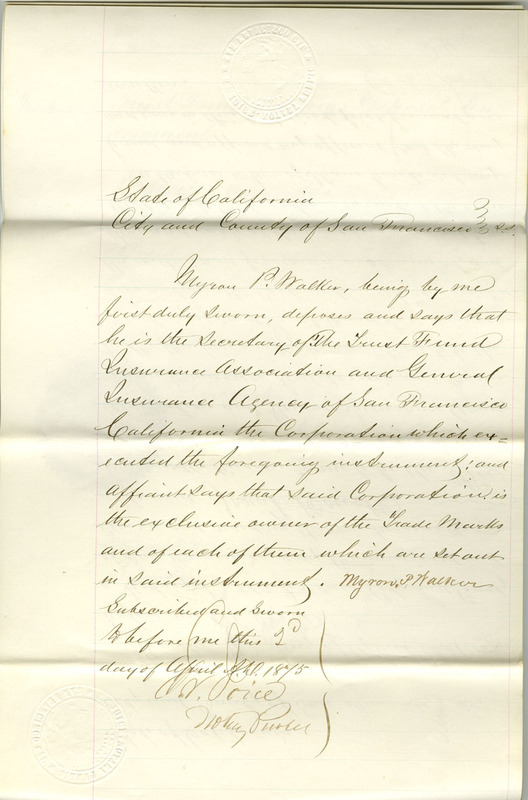 State of California
City and County of San Francisco } ss.
Myron P. Walker, being by me
first duly sworn, deposes and says that
he is the Secretary of "The Trust Fund
Insurance Association and General
Insurance Agency of San Francisco
California the Corporation which ex=
ecuted the foregoing instrument; and
affiant says that said Corporation is
the exclusive owner of the Trade Marks
and of each of them which are set out
in said instrument. Myron P Walker
Subscribed and Sworn
to before me this 2d
day of April A.D. 1875
Notary Public